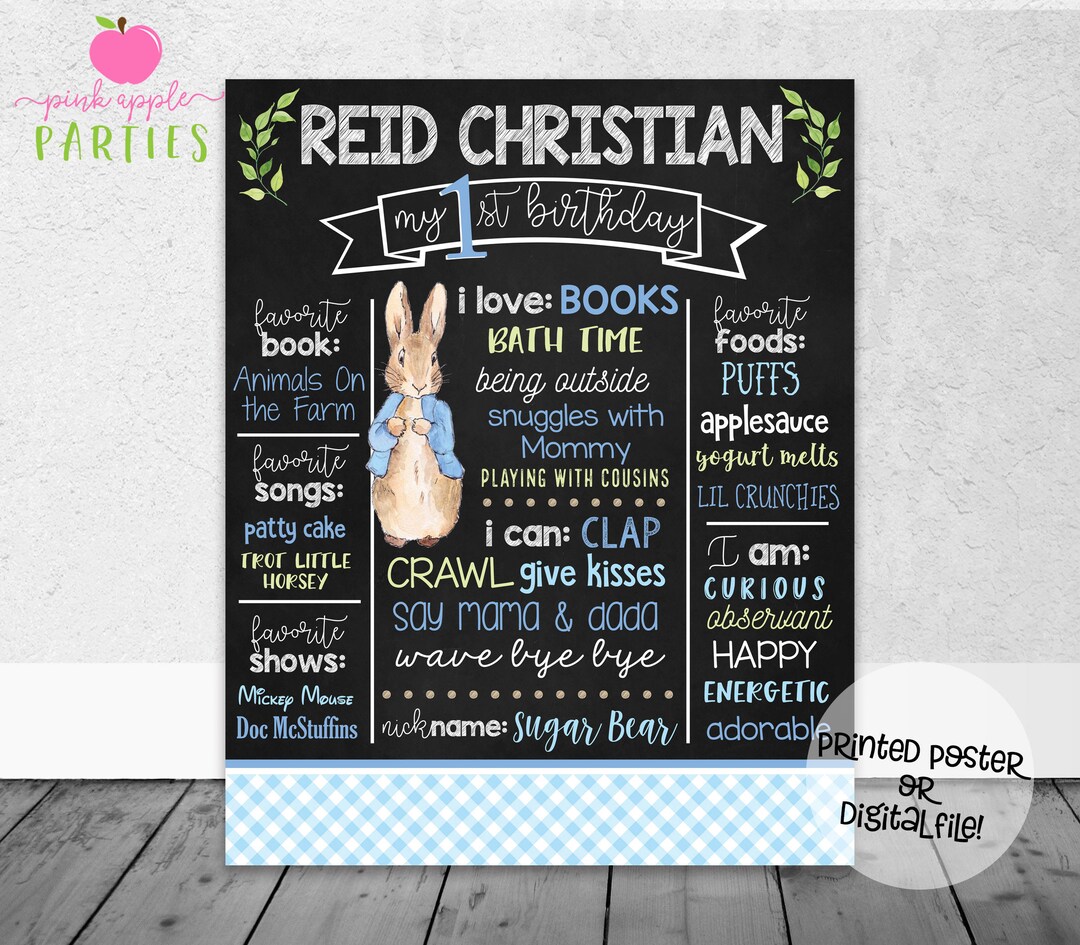 pink apple
PARTIES
REID CHRISTIAN
my 1st birthday
favorite
book:
Animals On
the Farm
favorite
songs:
patty cake
TROT LITTLE
HORSEY
favorite
shows:
Mickey Mouse
Doc McStuffins
i love: BOOKS
BATH TIME
being outside
snuggles with
Mommy
PLAYING WITH COUSINS
i can: CLAP
CRAWL give kisses
say mama & dada
wave bye bye
nickname: Sugar Bear
favorite
foods:
PUFFS
applesauce
yogurt melts
LIL CRUNCHIES
I am:
CURIOUS
observant
HAPPY
ENERGETIC
adorable
PRINTED POSTER
OR
DIGITAL FILE!